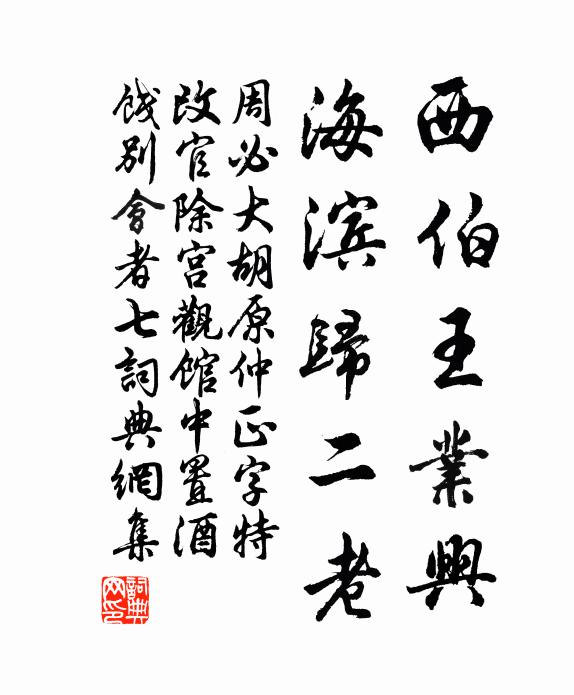 西伯王業興
海滨歸二老
周必大胡原仲正字特
改官除宫觀館中置酒
餞別會者七詞典網集
詞典網印